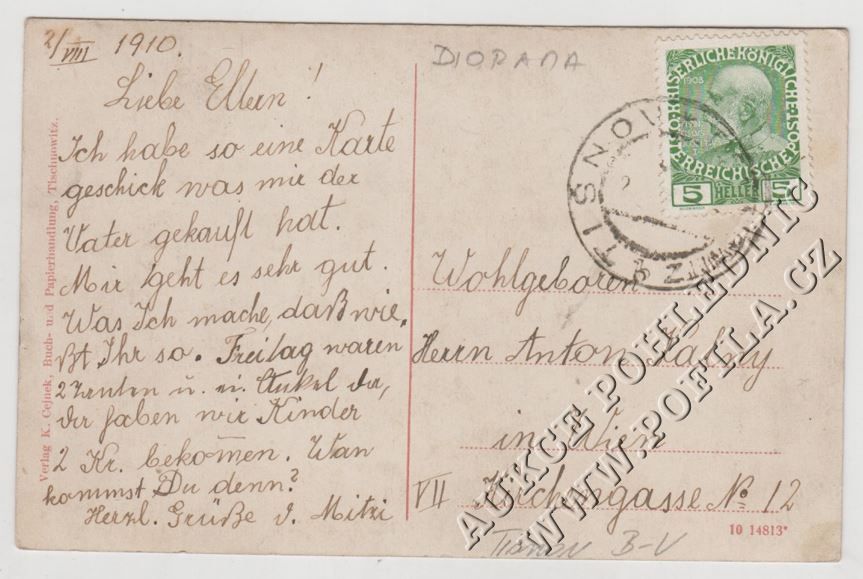 2/VIII 1910.
Liebe Eltern!
Ich habe so eine Karte
geschick was mir der
Vater gekauft hat.
Mir geht es sehr gut.
Was Ich mache, daß wie.
ßt Ihr so. Freitag waren
2 Tanten u. ein Onkel da,
da haben wir Kinder
2 Kr. bekom̅en. Wan
kommst Du denn?
Herzl. Grüße v. Mitzi
Verlag K. Cejnek, Buch- und Papierhandlung, Tischnowitz.
DIORAMA
KAISERLICHE KÖNIGLICHE
ÖSTERREICHISCHE POST
1908
5 HELLER 5
TIŠNOV
Wohlgeboren
Herrn Anton
in Wien
VII Kirchengasse No 12
10 14813*
Tišnov B-V
AUKCE POHLEDNIC
WWW.POFILA.CZ